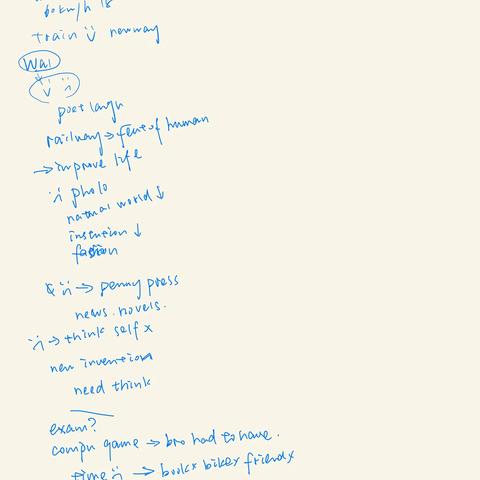 train :) new way
Wal
:) :(
poet laugh
railway → feat of human
→ improve life
:( photo
natural world ↓
invention ↓
fashion
& :( → penny press
news. novels.
:( → think self x
new invention
need think
exam?
compu game → bro had to have.
time :( → book x bike x friend x